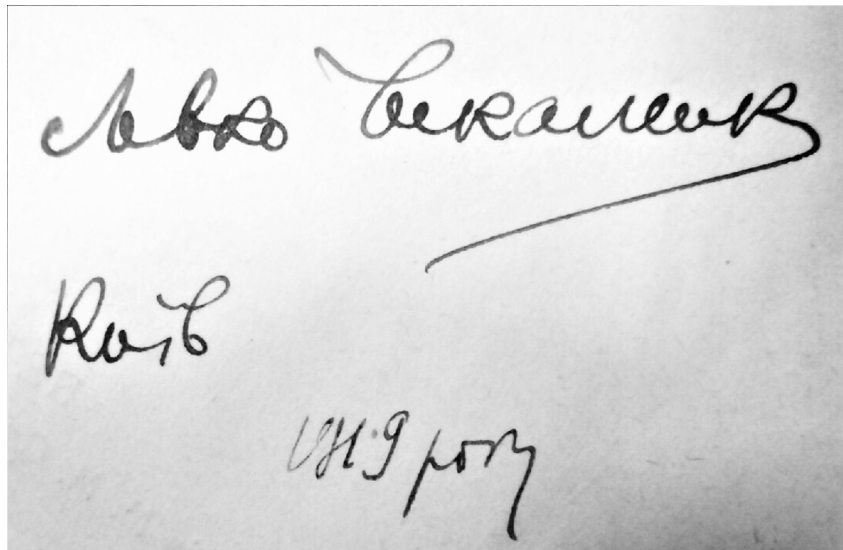 Левко Чикаленко
Київ
року